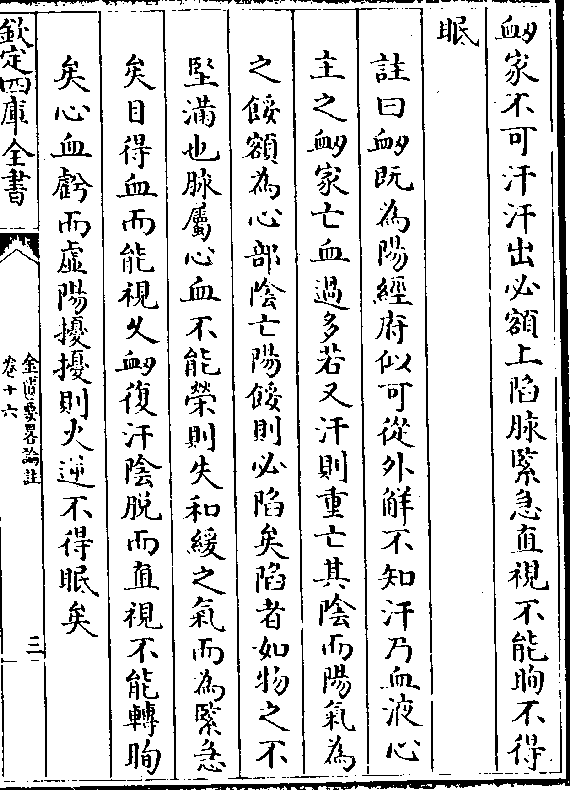 衂家不可汗汗出必額上陷脉緊急直視不能眴不得
眠
註曰衂既為陽經府似可從外解不知汗乃血液心
主之衂家亡血過多若又汗則重亡其陰而陽氣為
之餒額為心部陰亡陽餒則必陷矣陷者如物之不
堅滿也脉屬心血不能榮則失和緩之氣而為緊急
矣目得血而能視乆衂復汗陰脱而直視不能轉眴
矣心血虧而虛陽擾擾則火逆不得眠矣
欽定四庫全書
金匱要畧論註
卷十六
三